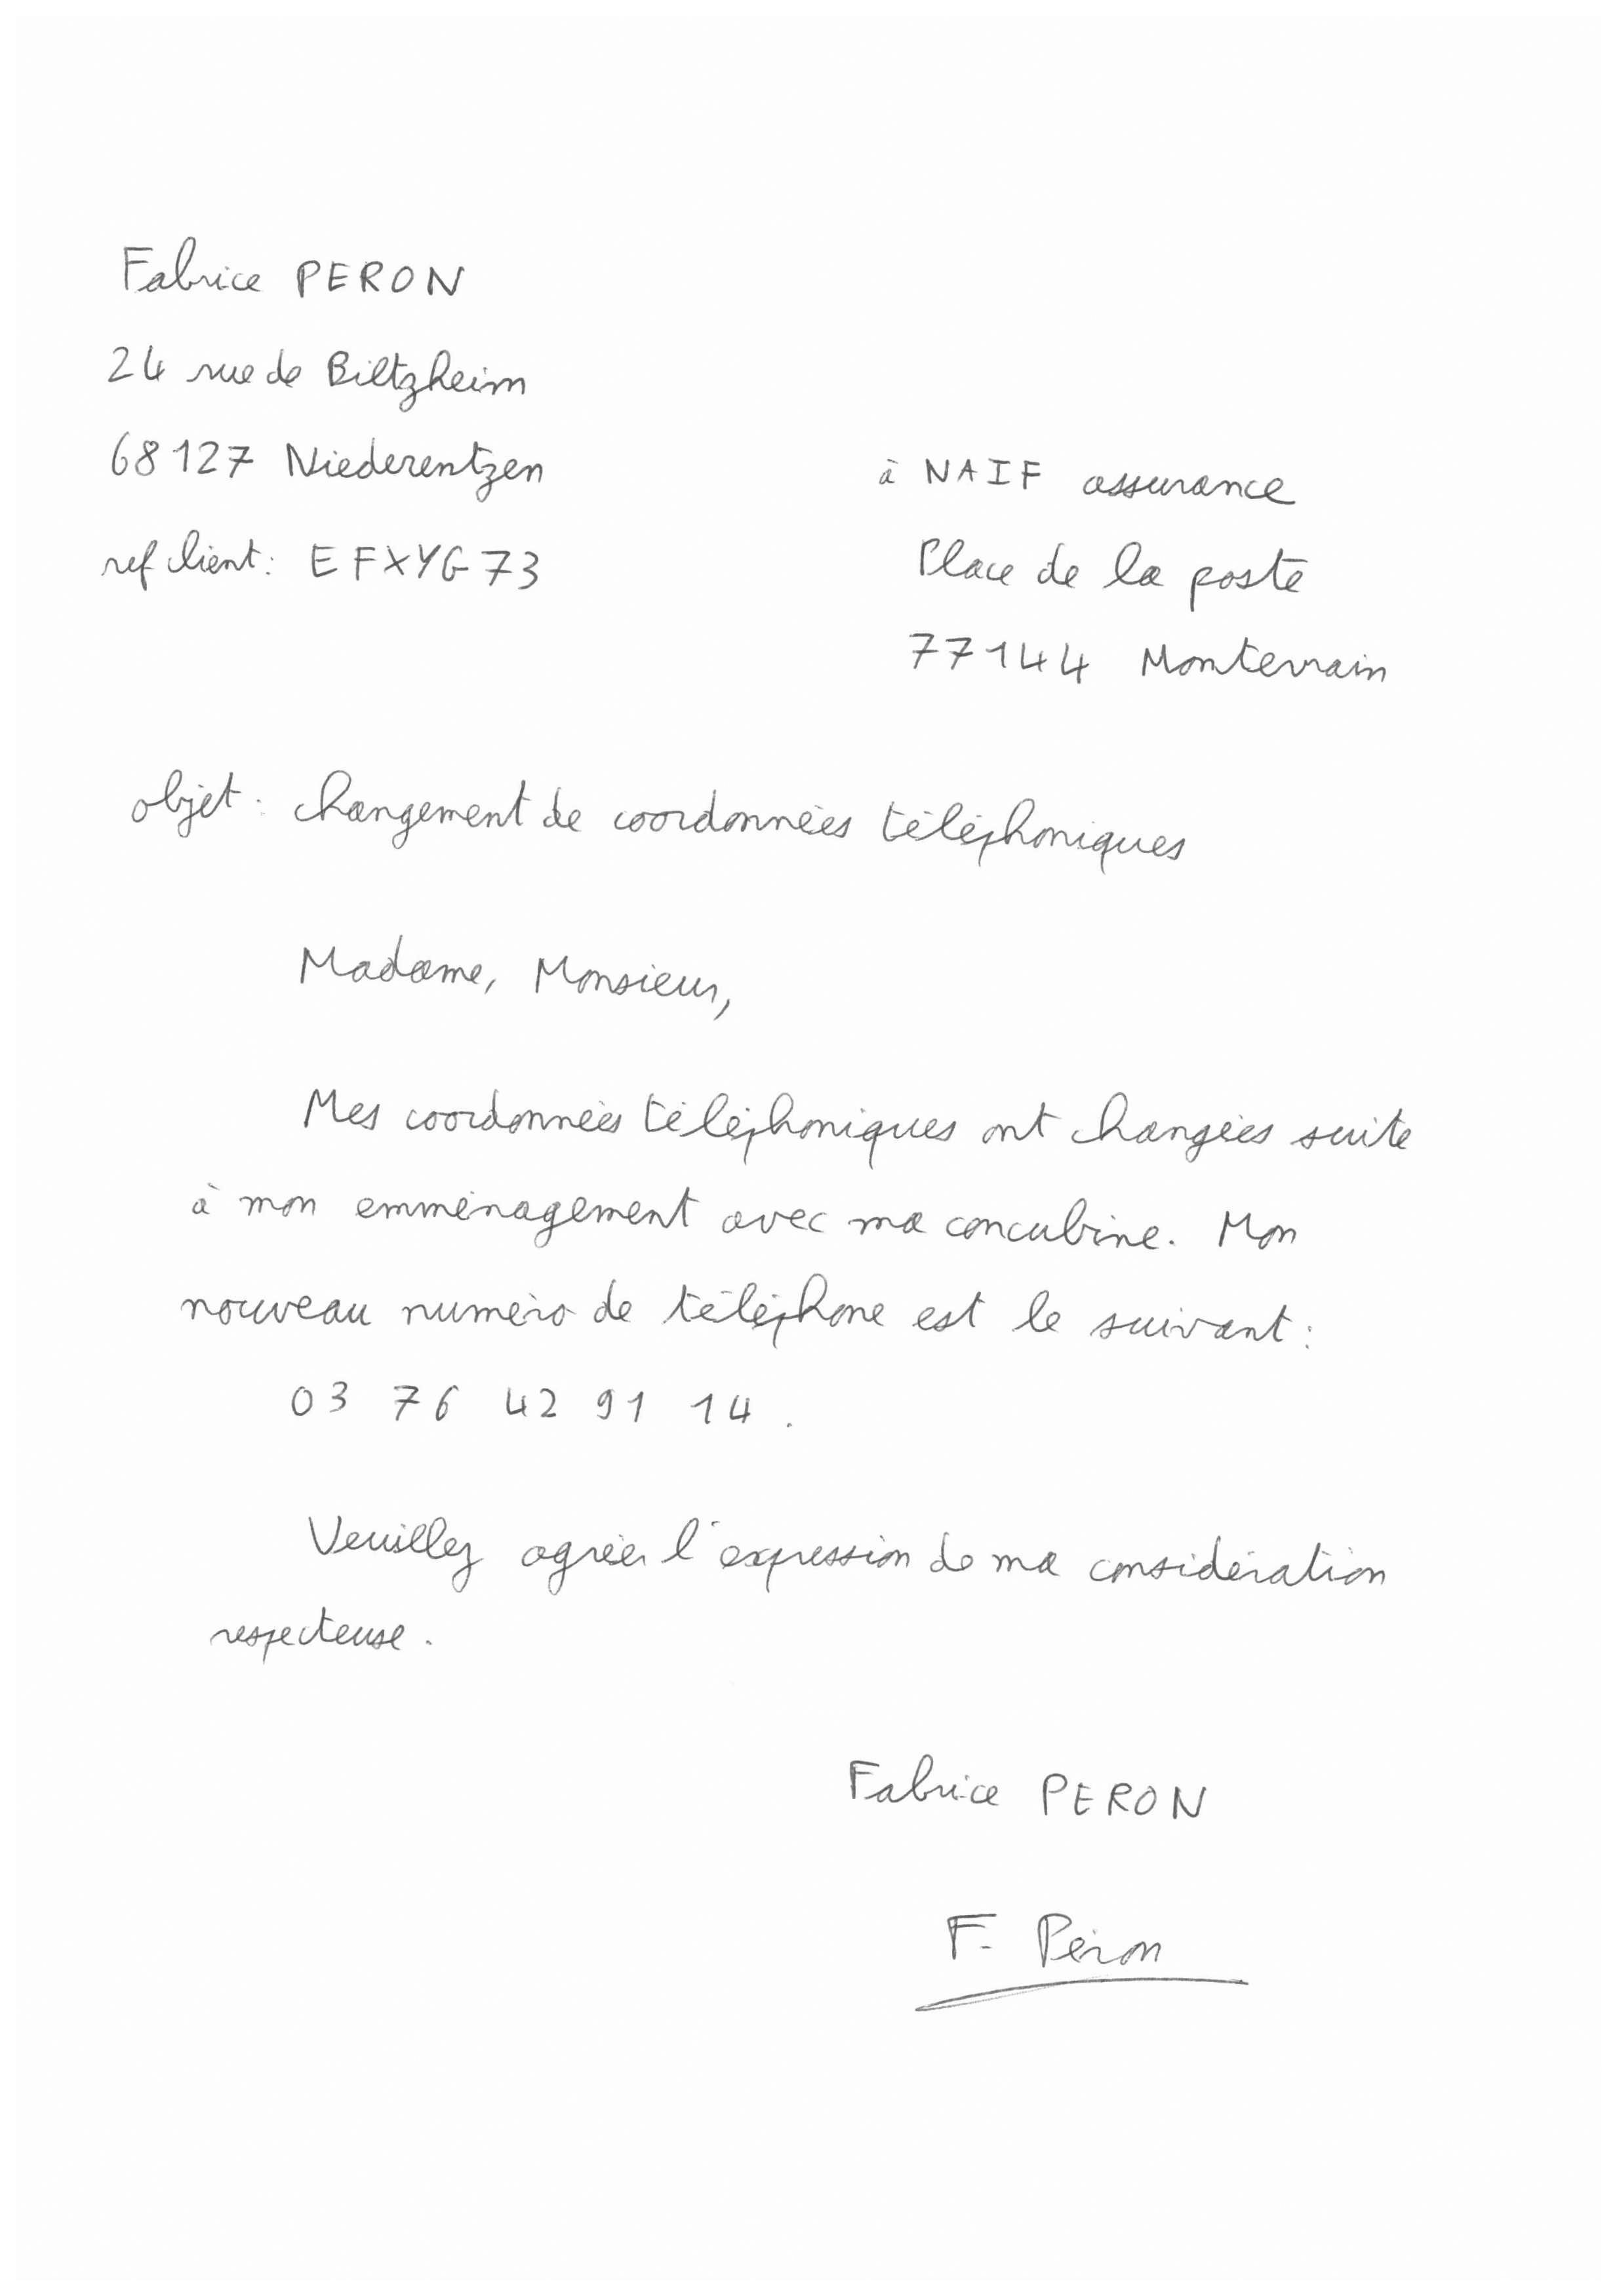 Fabrice PERON
24 rue de Biltzheim
68127 Niederentzen
ref client : EFXYG73
à NAIF assurance
Place de la poste
77144 Montevrain
objet : changement de coordonnées téléphoniques
Madame, Monsieur,
Mes coordonnées téléphoniques ont changées suite
à mon emménagement avec ma concubine. Mon
nouveau numéro de téléphone est le suivant :
03 76 42 91 14.
Veuillez agréer l'expression de ma considération
respecteuse.
Fabrice PERON
F. Péron